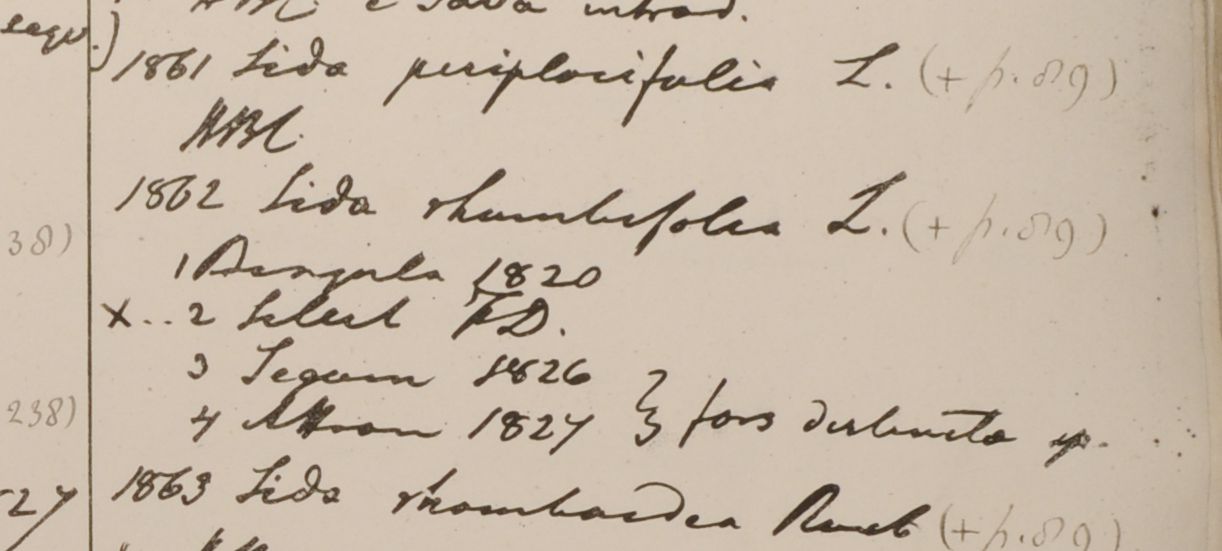 HBC e Java introd.
sequ.)
1861 Sida periplocifolia L. (+ p. 89)
HBC
1862 Sida rhombifolia L. (+ p. 89)
38)
1 Bengala 1820
x.. 2 Silhet FD.
3 Segam 1826
238)
4 1827 } fors distincta sp.
527
1863 Sida rhomboidea Roxb (+ p. 89)